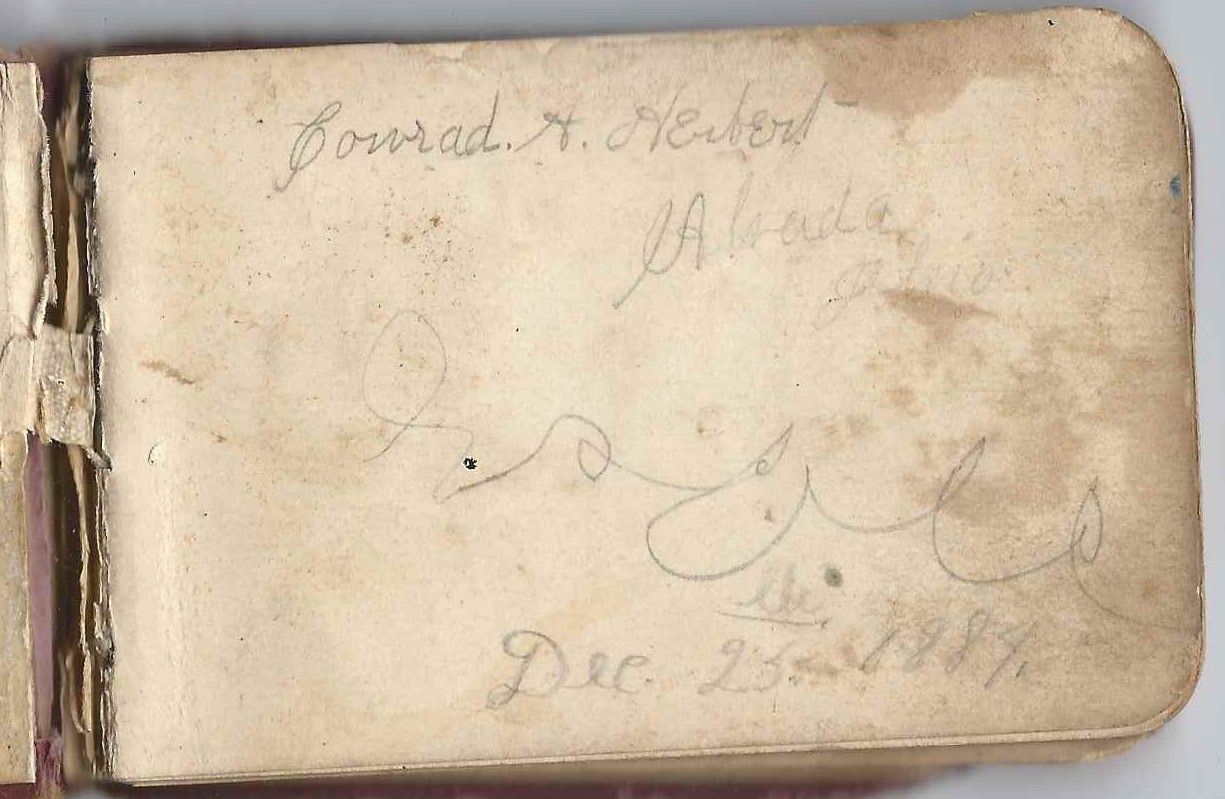 Conrad. A. Herbert
Alvada
Ohio.
Dec. 25. 1889.